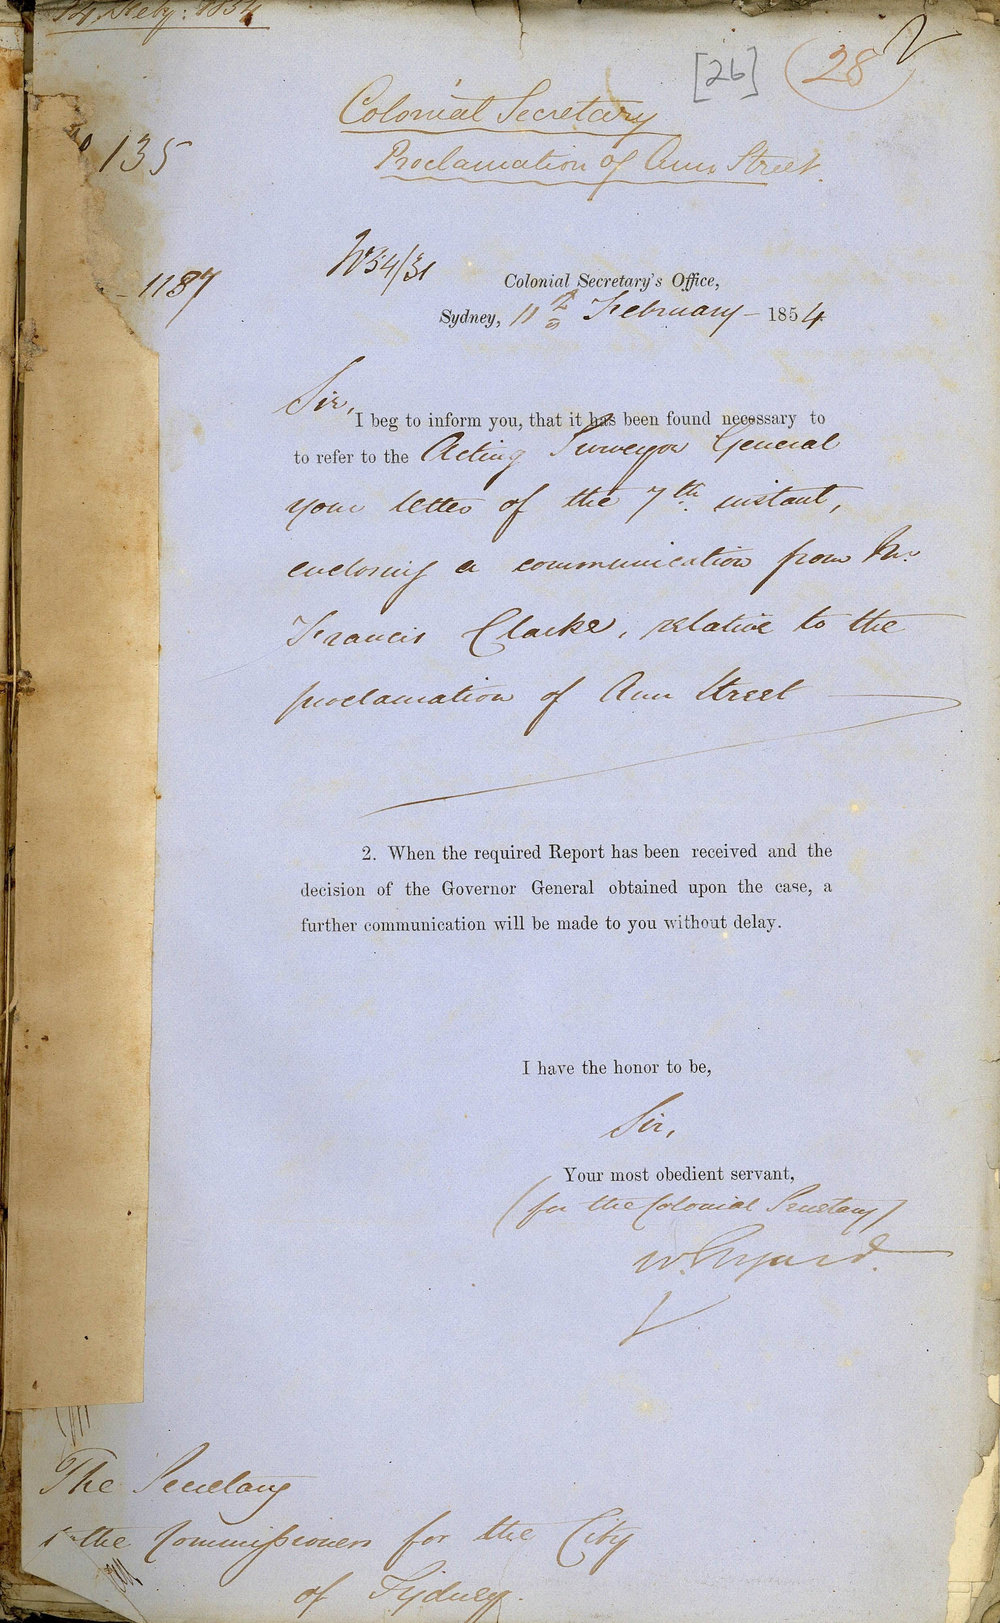 14 Feby. 1854
[26] 28
Colonial Secretary
No 135
Proclamation of Ann Street.
No 54/31
1187
Colonial Secretary's Office,
Sydney, 11th February 1854
Sir,
I beg to inform you, that it has been found necessary to
to refer to the Acting Surveyor General
your letter of the 7th. instant,
enclosing a communication from Mr.
Francis Clarke, relative to the
proclamation of Ann Street
2. When the required Report has been received and the
decision of the Governor General obtained upon the case, a
further communication will be made to you without delay.
I have the honor to be,
Sir,
Your most obedient servant,
(for the Colonial Secretary)
W. Elyard.
The Secretary
to the Commissioners for the City
of Sydney.